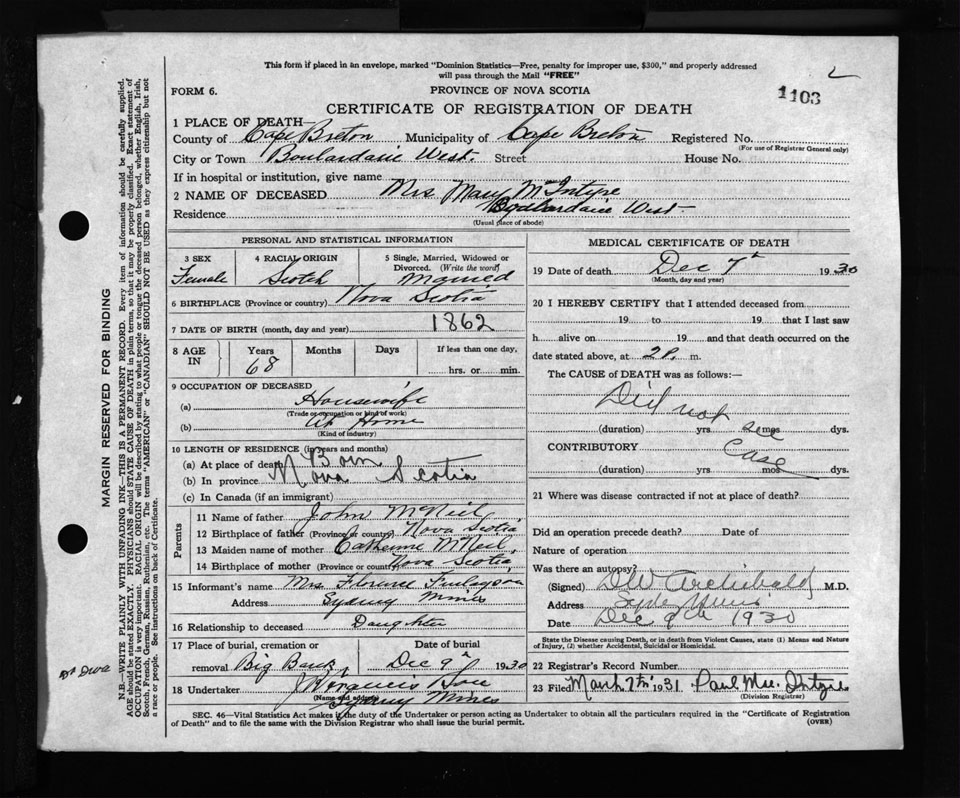 This form if placed in an envelope, marked "Dominion Statistics—Free, penalty for improper use, $300," and properly addressed
will pass through the Mail "FREE"
1103
FORM 6.
PROVINCE OF NOVA SCOTIA
CERTIFICATE OF REGISTRATION OF DEATH
1 PLACE OF DEATH
County of Cape Breton Municipality of Cape Breton Registered No.
(For use of Registrar General only)
City or Town Boulardarie West. Street House No.
If in hospital or institution, give name
2 NAME OF DECEASED Mrs Mary McIntyre
Residence Boulardarie West
(Usual place of abode)
PERSONAL AND STATISTICAL INFORMATION
3 SEX 4 RACIAL ORIGIN 5 Single, Married, Widowed or
Divorced. (Write the word)
Female Scotch Married
6 BIRTHPLACE (Province or country) Nova Scotia
7 DATE OF BIRTH (month, day and year) 1862
8 AGE IN Years Months Days If less than one day,
68 hrs. or min.
9 OCCUPATION OF DECEASED
(a) Housewife
(Trade or occupation or kind of work)
(b) At Home
(Kind of industry)
10 LENGTH OF RESIDENCE (in years and months)
(a) At place of death Born
(b) In province Nova Scotia
(c) In Canada (if an immigrant)
Parents
11 Name of father John McNeil
12 Birthplace of father (Province or country) Nova Scotia
13 Maiden name of mother Catherine McNeil
14 Birthplace of mother (Province or country) Nova Scotia
15 Informant's name Mrs Florence Finlayson
Address Sydney Mines
16 Relationship to deceased Daughter
17 Place of burial, cremation or Date of burial
removal Big Bank, Dec 9th 1930
18 Undertaker Francis
(Name and address)
Sydney Mines
MEDICAL CERTIFICATE OF DEATH
19 Date of death Dec 7th 1930
(Month, day and year)
20 I HEREBY CERTIFY that I attended deceased from
19 to 19 that I last saw
h alive on 19 and that death occurred on the
date stated above, at 2 P. m.
The CAUSE of DEATH was as follows:—
Did not
(duration) yrs see mos dys.
CONTRIBUTORY Case
(duration) yrs mos dys.
21 Where was disease contracted if not at place of death?
Did an operation precede death? Date of
Nature of operation
Was there an autopsy?
(Signed) DW Archibald M.D.
Address Sydney Mines
Date Dec 9th 1930
State the Disease causing Death, or in death from Violent Causes, state (1) Means and Nature
of Injury, (2) whether Accidental, Suicidal or Homicidal.
22 Registrar's Record Number
23 Filed March 7th 1931 Paul Mc. Intyre
(Division Registrar)
SEC. 46—Vital Statistics Act makes it the duty of the Undertaker or person acting as Undertaker to obtain all the particulars required in the "Certificate of Registration
of Death" and to file the same with the Division Registrar who shall issue the burial permit. (OVER)
MARGIN RESERVED FOR BINDING
N.B.—WRITE PLAINLY WITH UNFADING INK—THIS IS A PERMANENT RECORD. Every item of information should be carefully supplied.
AGE should be stated EXACTLY. PHYSICIANS should STATE CAUSE OF DEATH in plain terms, so that it may be properly classified. Exact statement of
OCCUPATION is very important. RACIAL ORIGIN will be described by stating to what people or tongue the deceased person belonged, whether English, Irish,
Scotch, French, German, Russian, Ruthenian, etc. The terms "AMERICAN" or "CANADIAN" SHOULD NOT BE USED as they express citizenship but not
a race or people. See instructions on back of Certificate.